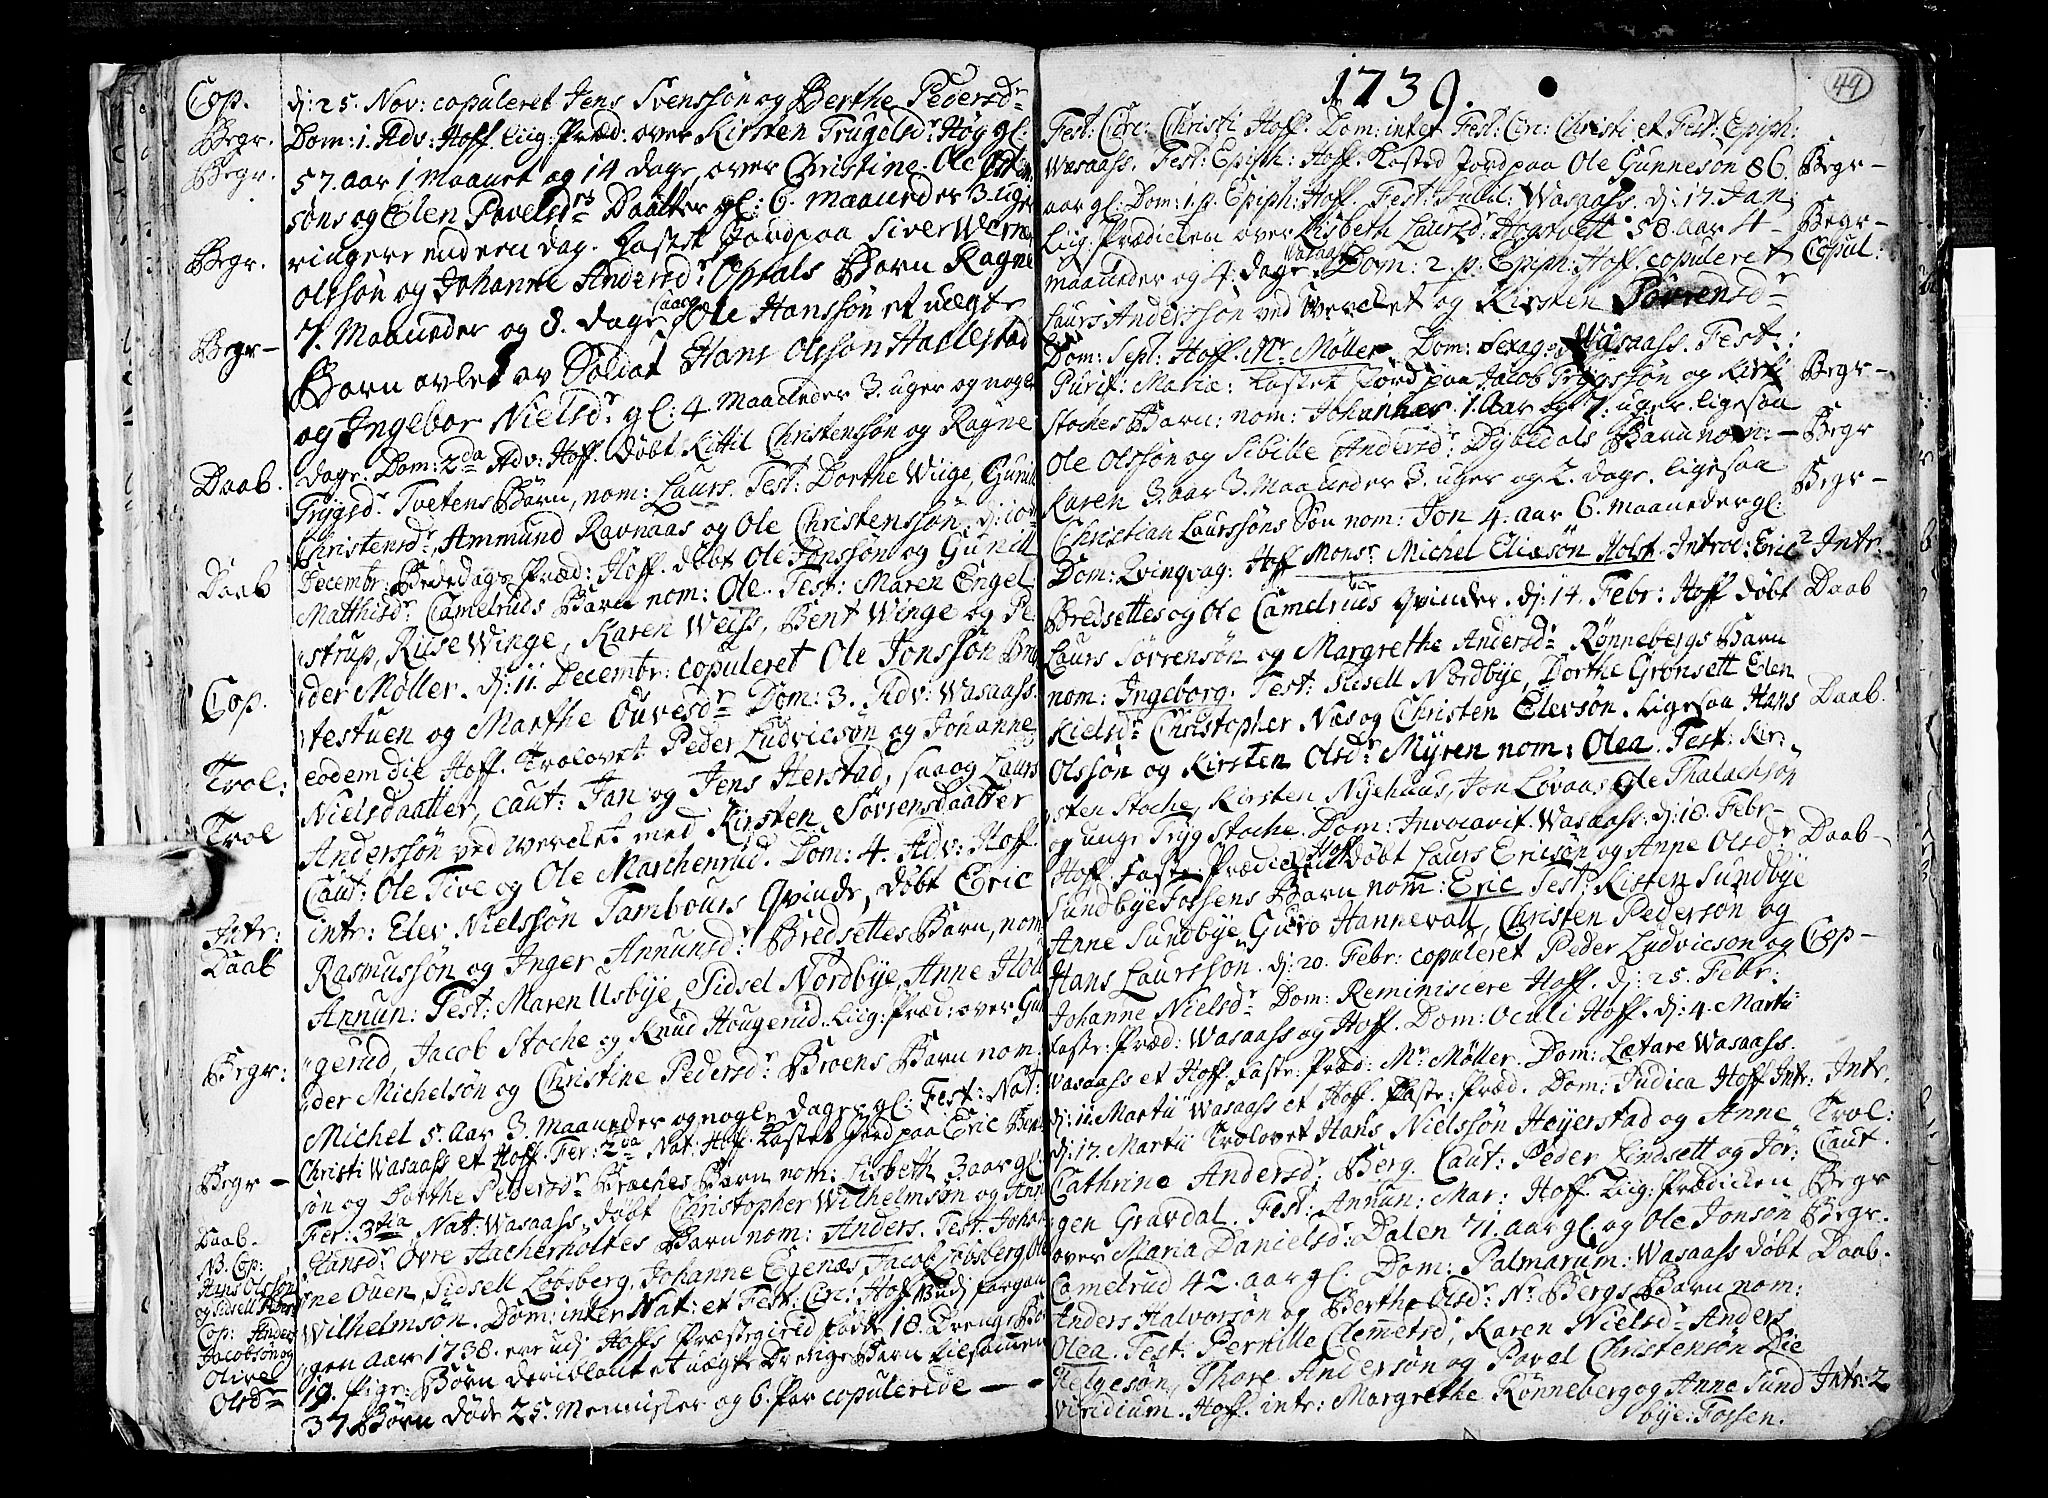 Cop.
Begr.
Begr.
Begr.
Begr—
Daab.
Daab
Cop.
Trol:
Trol
Intr:
Daab
Begr:
Begr—
Daab.
NB. Cop:
Hans Olssøn
og Sidsell
Cop: Anders
Jacobsøn og
Olive
Olsdr
dj: 25. Nov: copuleret Jens Svenssøn og Berthe Pedersdr
Dom: 1. Adv: Hoff. Liig: Præd: over Kirsten Trugelsdr Høy gl:
57. aar 1 maanet og 14 dage, over Christine Ole
søns og Elen Povelsdrs Daatter gl: 6. maaneder 3. uger
ringere end een dag. Kastet Jord paa Siver
Olssøn og Johanne Andersdr Opsals Barn Ragne
7. Maaneder og 8. dage, saa og Ole Hanssøn et uægte
Barn avlet av Soldat Hans Olssøn Hallestad
og Ingebor Nielsdr gl: 4. Maaneder 3. uger og nogle
dage. Dom: 2da Adv: Hoff. døbt Kittil Christenssøn og Ragne
Trygsdr Tvetens Barn, nom: Laurs. Test: Dorthe Wiige, Gunil
Christensdr, Ammund Ravnaas og Ole Christenssøn. dj: 10
Decembr: Bededags Præd: Hoff. døbt Ole Jonssøn og Gunill
Matthisdr Camelruds Barn nom: Ole. Test: Maren Engel
strup, Riise Winge, Karen Weiss, Bent Winge og Pe
der Møller. dj: 11. Decembr: copuleret Ole Jonssøn
testuen og Marthe Ouvesdr Dom: 3. Adv: Wasaass.
eodem die Hoff. Trolovet Peder Ludvicsøn og Johanne
Nielsdaatter, Caut: Jan og Jens Herstad, saa og Laurs
Anderssøn ved Werchet med Kirsten Sørrensdaatter
Caut: Ole Tive og Ole Marchenrud. Dom: 4. Adv: Hoff.
intr: Elev Nielssøn Tambours Qvinde, døbt Eric
Rasmussøn og Inger Annunsdr Bredsettes Barn, nom:
Annun: Test: Maren Usbye, Sidsel Nordbye, Anne Hou
gerud, Jacob Stoche og Knud Hougerud. Liig: Præd: over
der Michelsøn og Christine Pedersdr Broens Barn nom:
Michel 5. Aar 3. maaneder og nogle dage gl: Fest: Nat:
Christi Wasaass et Hoff. Fer: 2da Nat: Hoff. Kastet Jord paa Eric
søn og Dorthe Pedersdr Braches Barn nom: Lisbeth 3 aar gl:
Fer: 3tia Nat: Wasaass, døbt Christopher Wilhelmsøn og Anne
Hansdr Øvre Aacherholtes Barn nom: Anders. Test: Johan
ne Ouen, Sidsell Løvsberg, Johanne Egenæs, Jacob Løvsberg, Ole
Wilhelmsøn. Dom: inter Nat: et Fest: Circ: Hoff. Udj forgan
gen Aar 1738. ere udj Hoffs Præstegield fødde 18. Drenge
19. Pige: Børn deriblant et uægte Drenge Barn tilsammen
37 Børn døde 25. Mennisker og 6. Par copulerede —
1739.
49
Fest: Circ: Christi Hoff. Dom: inter Fest: Circ: Christi et Fest: Epiph:
Wasaass. Fest: Epiph: Hoff. Kasted Jord paa Ole Gunnesøn 86. Begr—
aar gl: Dom: 1. p. Epiph: Hoff. Wasaass. dj: 17. Jan:
Liig: Prædicken over Lisbeth Laursdr 58. aar 4 — Begr—
maaneder og 4. dage. Dom: 2. p. Epiph: Hoff. copuleret Copul:
Laurs Anderssøn ved Werchet og Kirsten Sørrensdr
Dom: Sept: Hoff. Mr Møller. Dom: Sexag: Wasaass. Fest:
Purif: Mariæ: Kastet Jord paa Jacob Trygssøn og Kirst: Begr—
Stoches Barn: nom: Johannes. 1. Aar og 7. uger. ligesaa
Ole Olssøn og Sibille Andersdr Dybedals Barn nom: — Begr
Karen 3. aar 3. Maaneder 3. uger og 2. dage. ligesaa
Christian Laurssøns Søn nom: Jon 4. aar 6. maaneder gl: Begr—
Dom: Qvinqvag: Hoff Monsr Michel Eliasøn Holst. Introd: Eric Intr:2
Bredsettes og Ole Camelruds Qvinder. dj: 14. Febr: Hoff døbt Daab
Laurs Sørrensøn og Margrethe Andersdr Rønnebergs Barn
nom: Ingeborg. Test: Sidsell Nordbye, Dorthe Grønsett Elen
Kielsdr Christopher Næs og Christen Elevsøn. Ligesaa Hans Daab.
Olssøn og Kirsten Olsdr Myren nom: Olea. Test: Kir:
sten Stoche, Kirsten Nyehuus, Jon Løvaas, Ole Thalachsøn
og unge Tryg Stoche. Dom: Invocavit. Wasaass. dj: 18. Febr:
Hoff. Faste Prædicken døbt Laurs Ericsøn og Anne Olsdr Daab—
Sundbye Fossens Barn nom: Eric Test: Kisten Sundbye
Anne Sundbye, Guro Hannevall, Christen Pedersøn og
Hans Laurssøn. dj: 20. Febr: copuleret Peder Ludvicsøn og Cop—
Johanne Nielsdr Dom: Reminiscere Hoff. dj: 25. Febr:
Faste: Præd: Wasaass og Hoff. Dom: Oculi Hoff. dj: 4. Martii
Wasaass et Hoff. Faste: Præd: Mr Møller. Dom: Lætare Wasaass.
dj: 11 Martii Wasaass et Hoff. Faste: Præd. Dom: Judica Hoff Intr: Intr.
dj: 17. Martii Trolovet Hans Nielssøn Høyerstad og Anne Trol:
Cathrine Andersdr Berg. Caut: Peder Lindsett og Jør: Caut.
gen Gravdal. Fest: Annun: Mar: Hoff. Liig: Prædicken Begr
over Maria Danielsdr Dalen 71. aar gl: og Ole Jonsøn Begr.
Camelrud 42. aar gl: Dom: Palmarum: Wasaass døbt Daab.
Anders Halvorsøn og Berthe Olsdr Nr Bergs Barn nom:
Olea. Test: Pernille Clemetsdr, Karen Nielsdr Anders
Helgesøn, Thore Andersøn og Povel Christensøn Die
viridium. Hoff. intr: Margrethe Rønneberg og Anne Sund Intr:2
bye: Fossen.